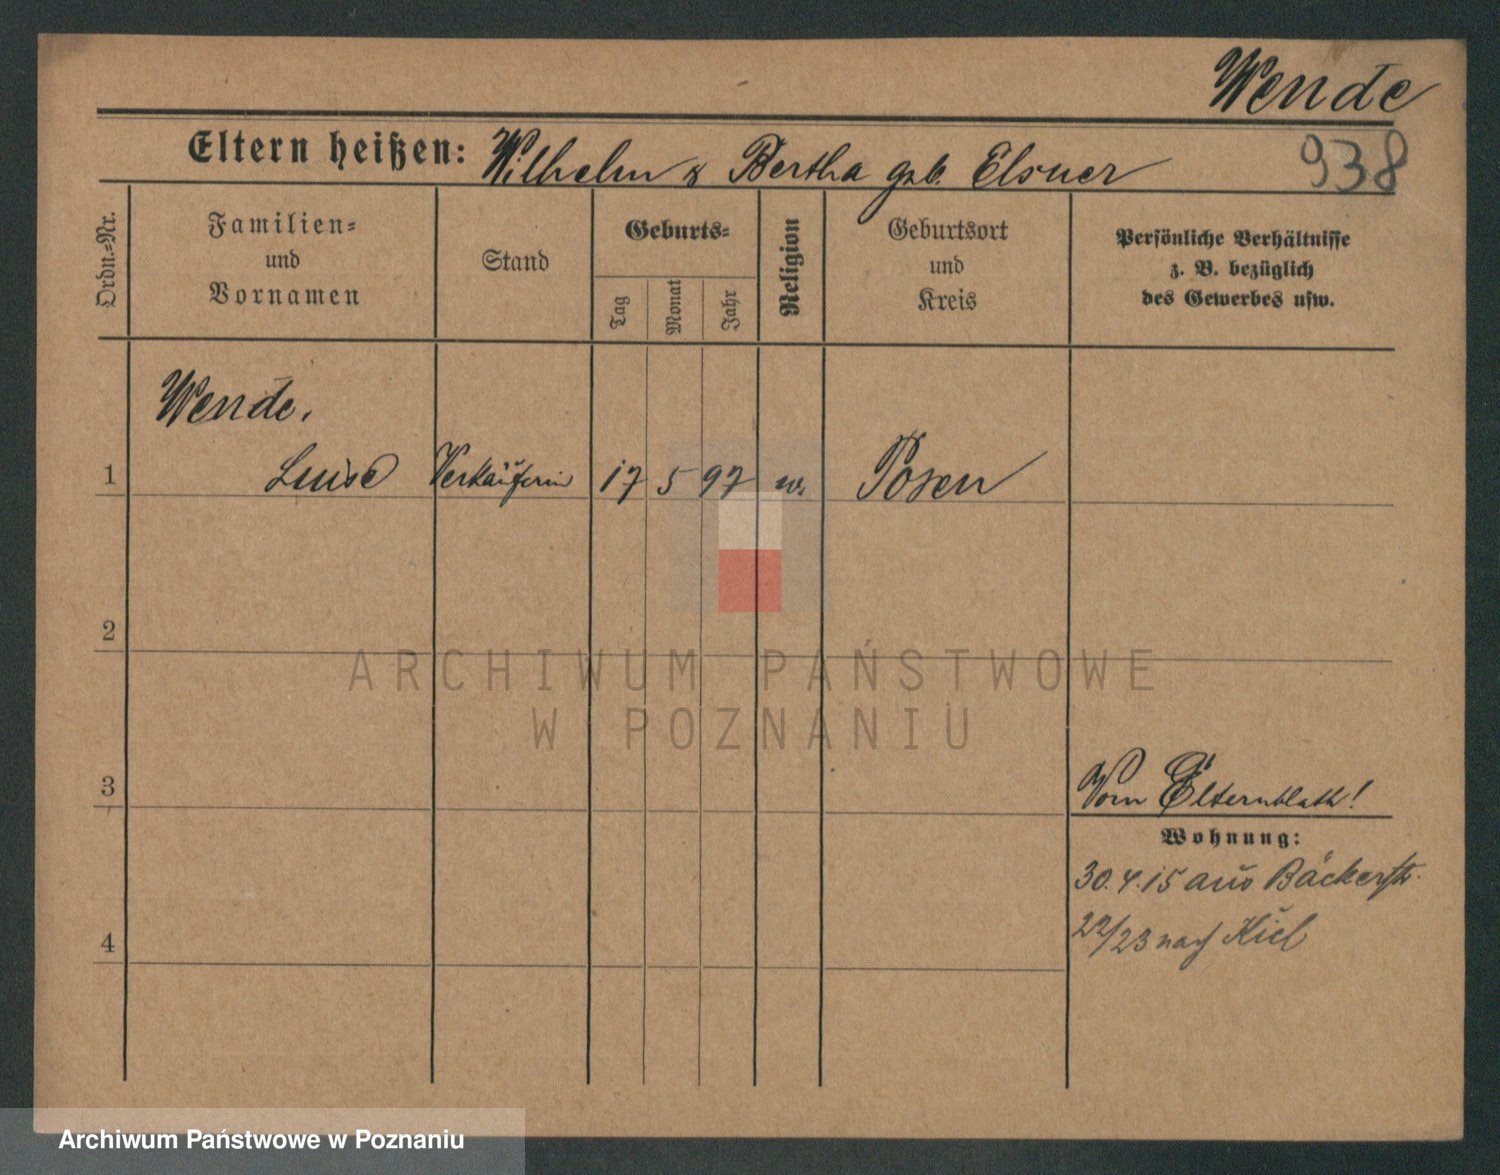 Wende
Eltern heißen: Wilhelm & Bertha geb. Elsner
938
Ordn.-Nr.
Familien- und Vornamen
Stand
Geburts-
Tag
Monat
Jahr
Religion
Geburtsort und Kreis
Persönliche Verhältnisse
z. B. bezüglich
des Gewerbes usw.
Wende,
1 Luise Verkäuferin 17 5 97 Posen
2
3
Vom Elternblatt!
Wohnung:
30.4.15 aus Bäckerstr.
22/23 nach Kiel
4
ARCHIWUM PAŃSTWOWE
W POZNANIU
Archiwum Państwowe w Poznaniu